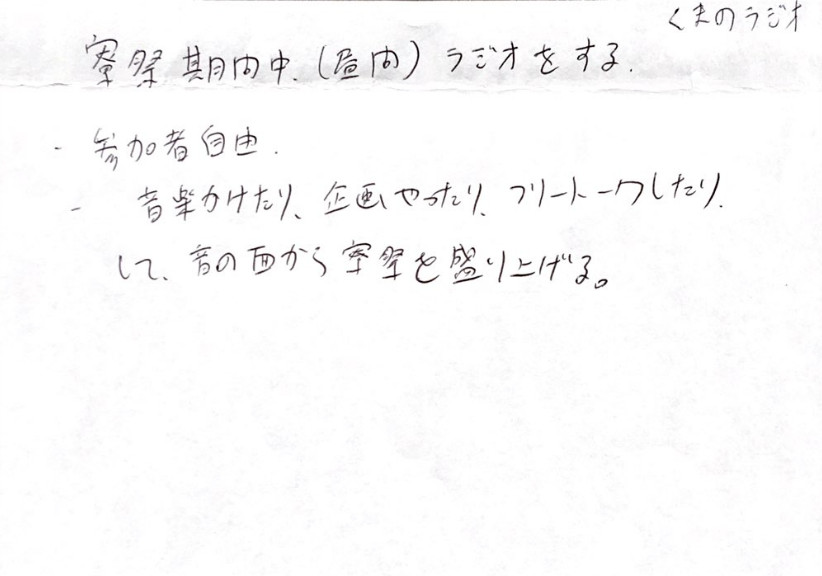 くまのラジオ
寮祭期間中、(昼間) ラジオをする.
- 参加者自由.
- 音楽かけたり、企画やったり、フリートークしたり、
して、音の面から寮祭を盛り上げる。